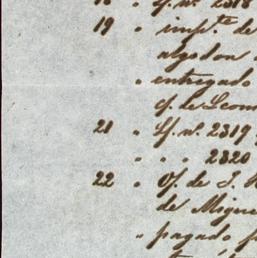 18 " Lf. nº. 2318
19 " impte. de
algodon
" entregado
cf. de Leon
21 " Lf. nº. 2319
" " " 2320
22 " Of. de J.
de Migue
" pagado